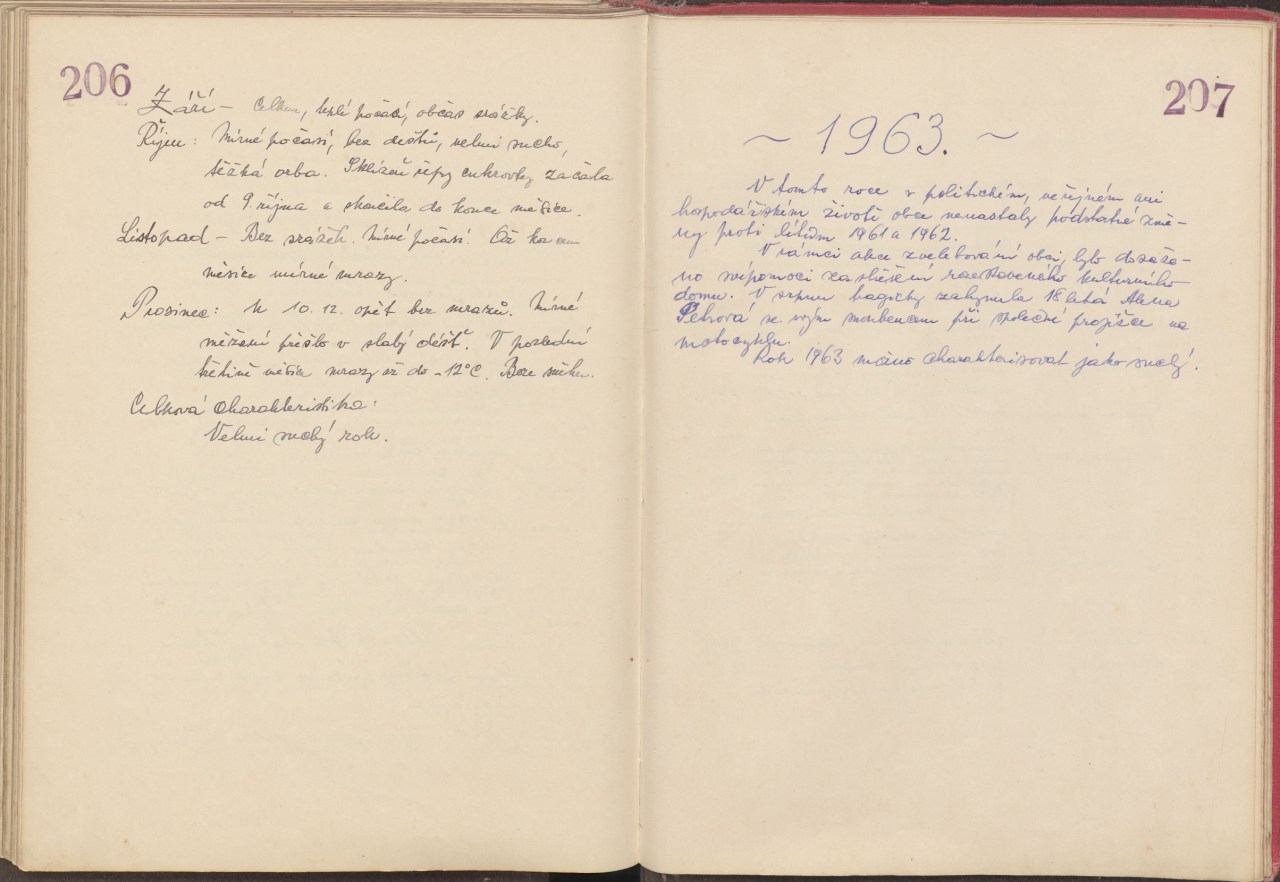 206
Září – Celkem, teplé počasí, občas srážky.
Říjen: Mírné počasí, bez dešťů, velmi sucho,
těžká orba. Sklizeň řepy cukrovky začala
od 9. října a skončila do konce měsíce.
Listopad – Bez srážek. Mírné počasí. Až koncem
měsíce mírné mrazy.
Prosinec: K 10. 12. opět bez mrazů. Mírné
mžení přešlo v slabý déšť. V poslední
třetině měsíce mrazy až do -12°C. Beze sněhu.
Celková charakteristika:
Velmi suchý rok.
207
~ 1963. ~
V tomto roce v politickém, veřejném ani
hospodářském životě obce nenastaly podstatné změ-
ny proti létům 1961 a 1962.
V rámci akce zvelebování obcí, bylo dosaže-
no svépomocí zastřešení rozestaveného kulturního
domu. V srpnu tragicky zahynula 18 letá Alena
Petrová se svým snoubencem při společné projížďce na
motocyklu.
Rok 1963 možno charakterisovat jako suchý.